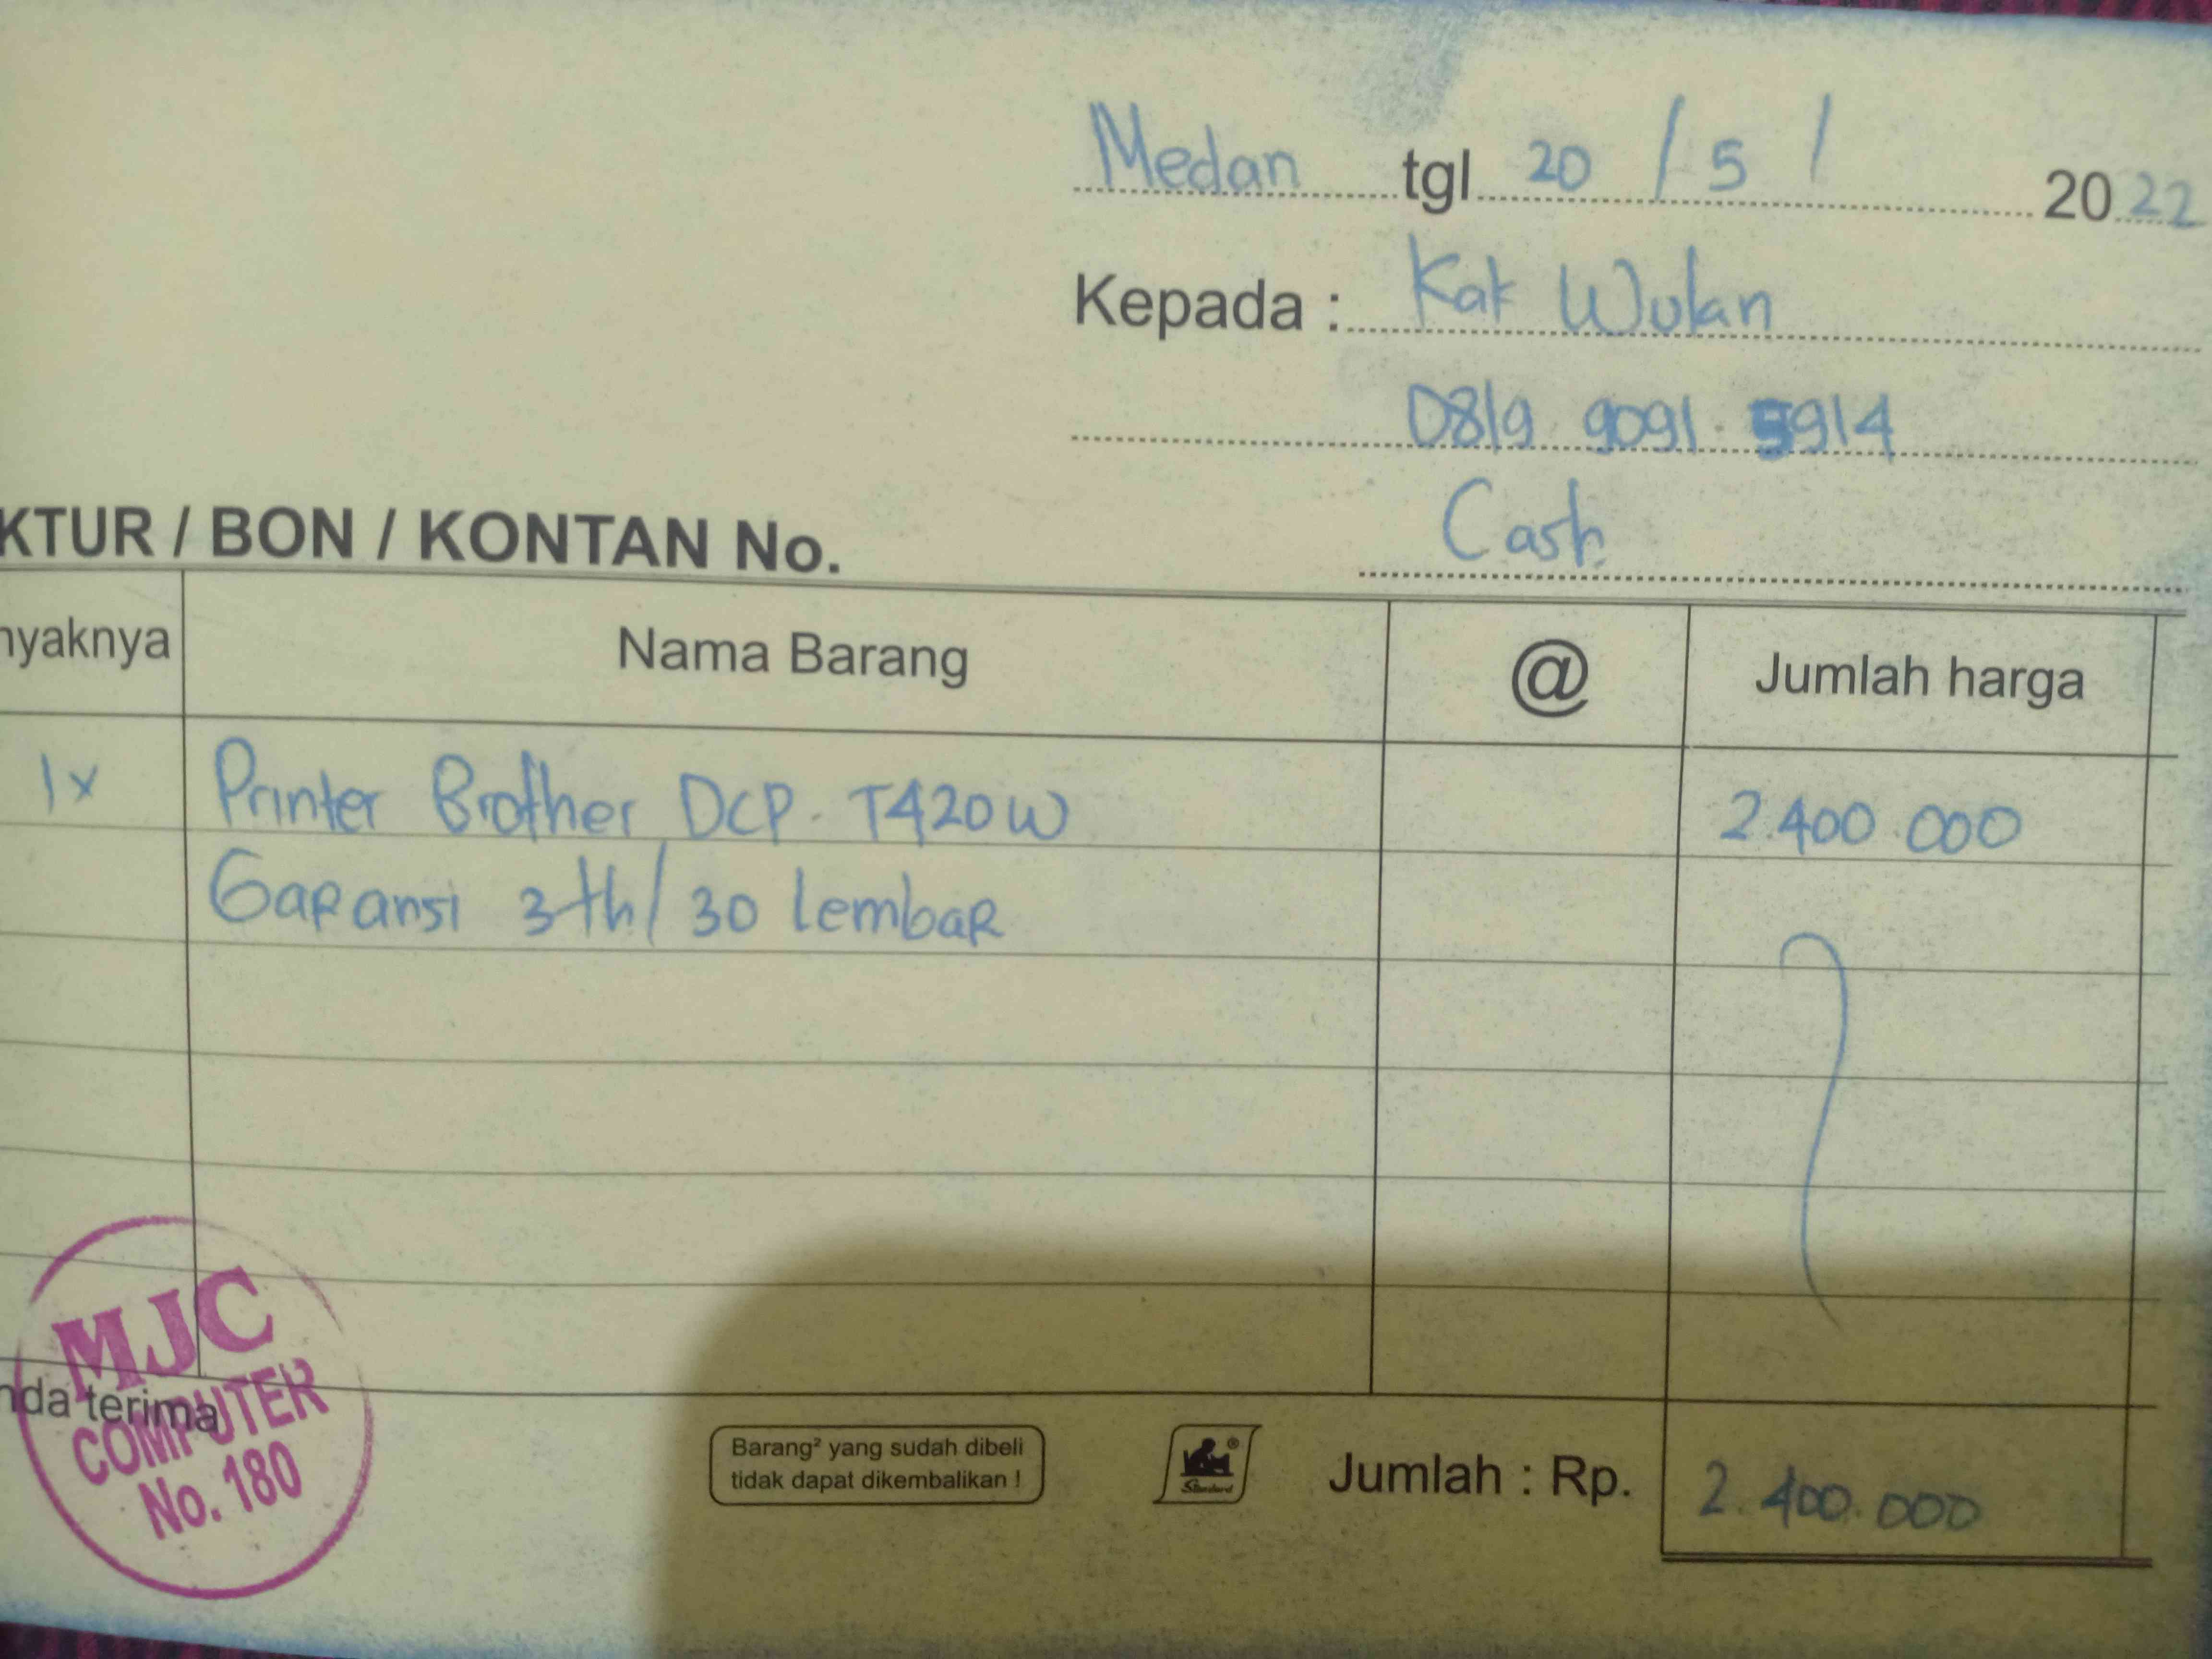 Medan tgl 20 / 5 / 2022
Kepada : Kak Wulan
0819 9091 5914
KTUR / BON / KONTAN No. Cash
nyaknya Nama Barang @ Jumlah harga
1x Printer Brother DCP. T420W 2.400.000
Garansi 3th/30 lembar
MJC
COMPUTER
No. 180
nda terima
Barang² yang sudah dibeli
tidak dapat dikembalikan !
Standard
Jumlah : Rp. 2.400.000